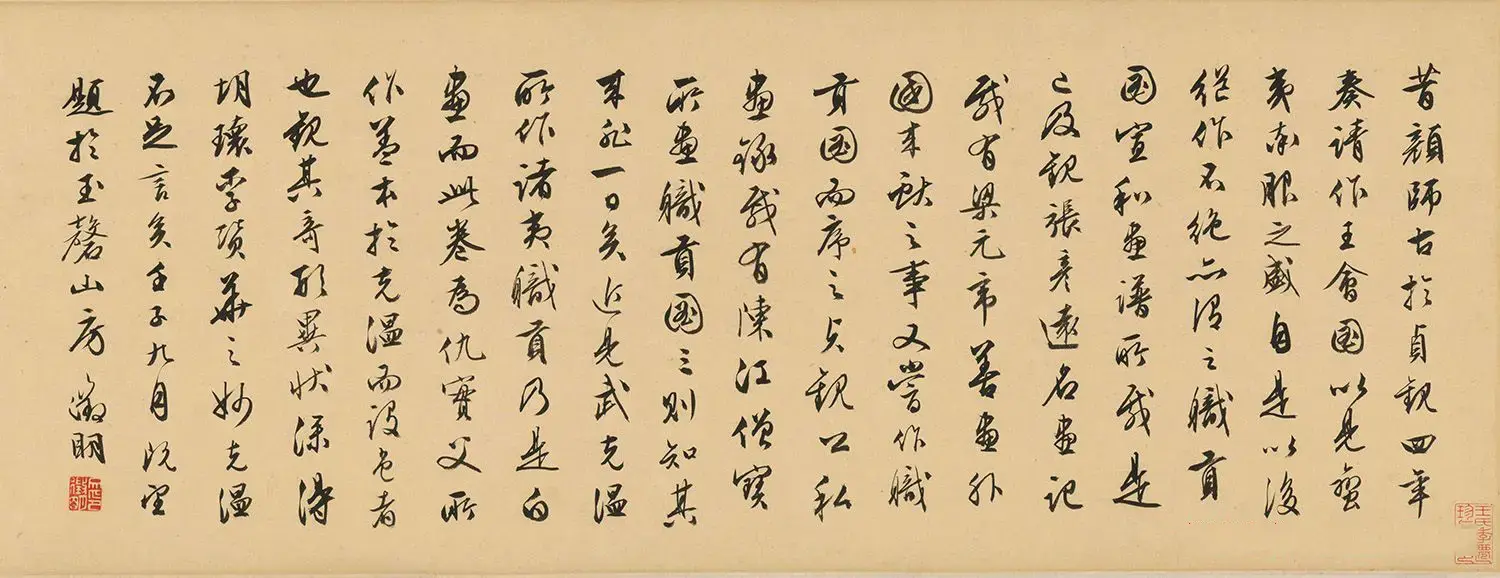 昔顏師古於貞觀四年
奏請作王會圖以見蠻
夷率服之盛自是以後
継作不絕亦謂之職貢
圖宣和畫譜所載是
已及觀張彥遠名畫記
載有梁元帝善畫外
國来献之事又嘗作職
貢圖而序之貞觀公私
畫錄載有陳江僧寶
所畫職貢圖三則知其
来非一日矣近見武克溫
所作諸夷職貢乃是白
畫而此卷為仇實父所
作盖本於克溫而設色者
也觀其奇形異狀深得
胡瓌李贊華之妙克溫
不足言矣壬子九月既望
題於玉磬山房徵明